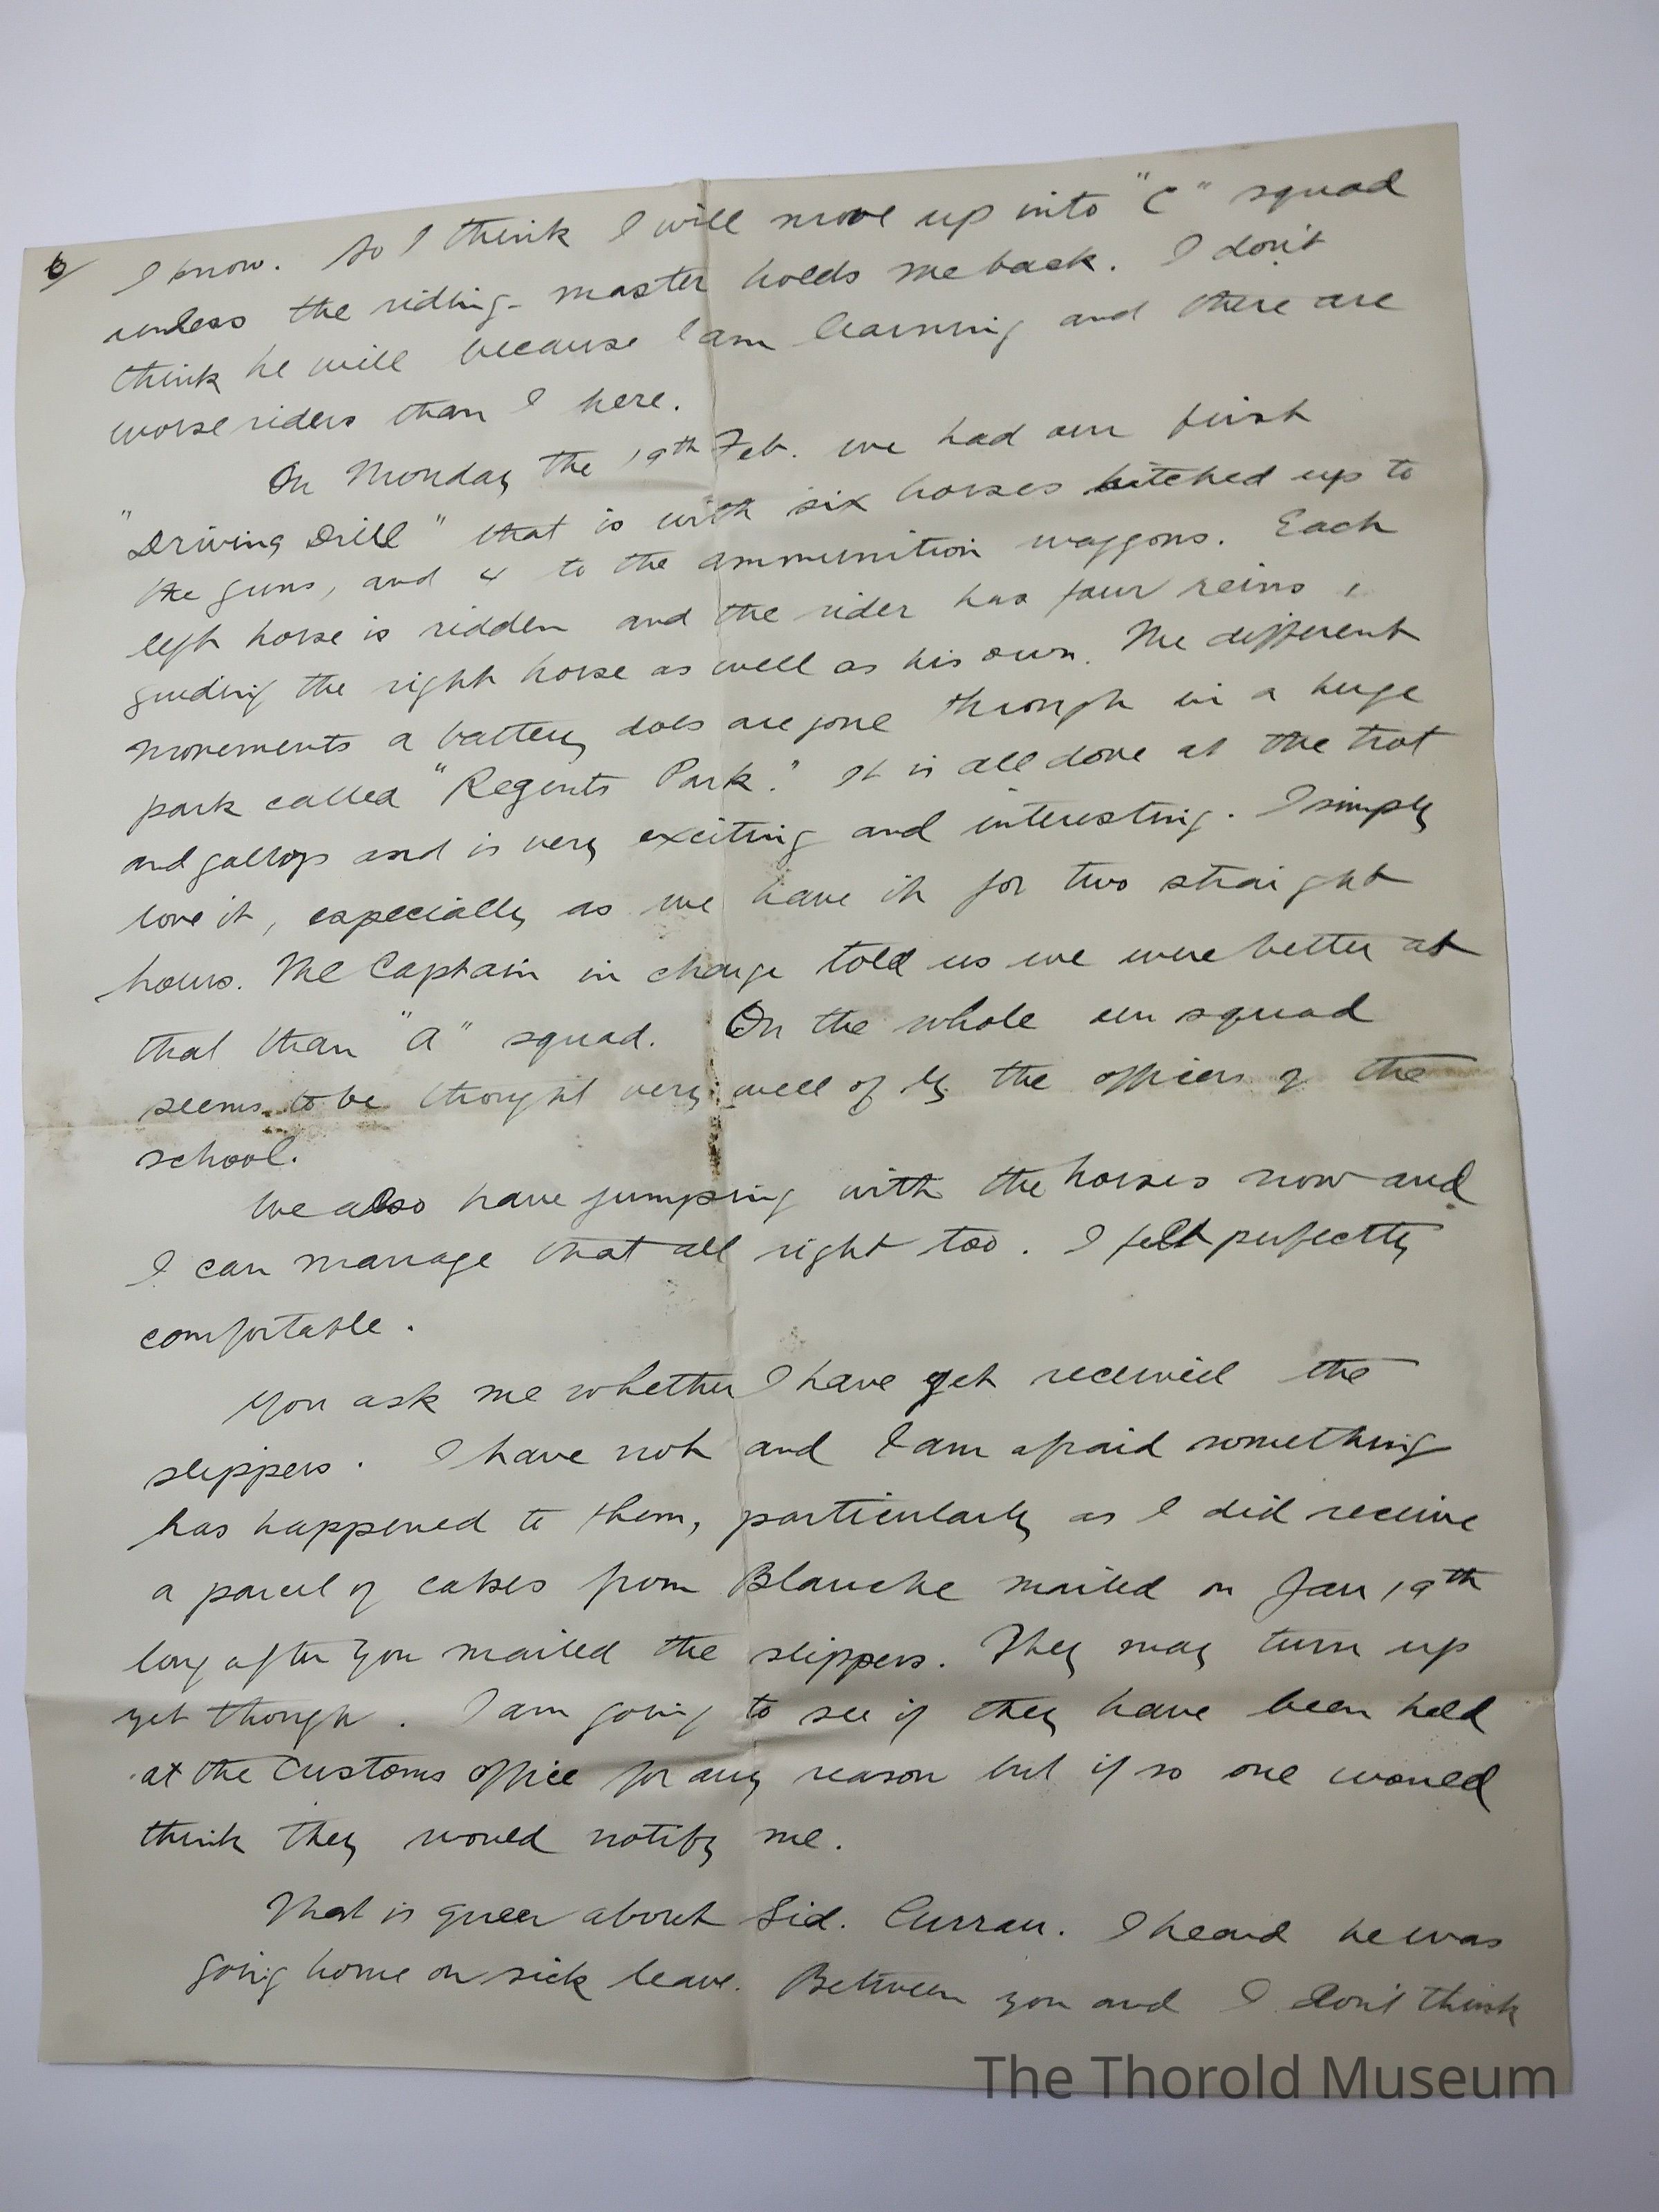 6/ I know. So I think I will move up into "C" squad
unless the riding-master holds me back. I don't
think he will because I am learning and there are
worse riders than I here.
On Monday the 19th Feb. we had our first
"Driving Drill" that is with six horses hitched up to
the guns, and 4 to the ammunition waggons. Each
left horse is ridden and the rider has four reins,
guiding the right horse as well as his own. The different
movements a battery does are gone through in a huge
park called "Regents Park." It is all done at the trot
and gallop and is very exciting and interesting. I simply
love it, especially as we have it for two straight
hours. The Captain in charge told us we were better at
that than "A" squad. On the whole our squad
seems to be thought very well of by the officers of the
school.
We also have jumping with the horses now and
I can manage that all right too. I felt perfectly
comfortable.
You ask me whether I have yet received the
slippers. I have not and I am afraid something
has happened to them, particularly as I did receive
a parcel of cakes from Blanche mailed on Jan 19th
long after you mailed the slippers. They may turn up
yet though. I am going to see if they have been held
at the Customs office for any reason but if so one would
think they would notify me.
That is queer about Sid. Curran. I heard he was
going home on sick leave. Between you and I don't think
The Thorold Museum